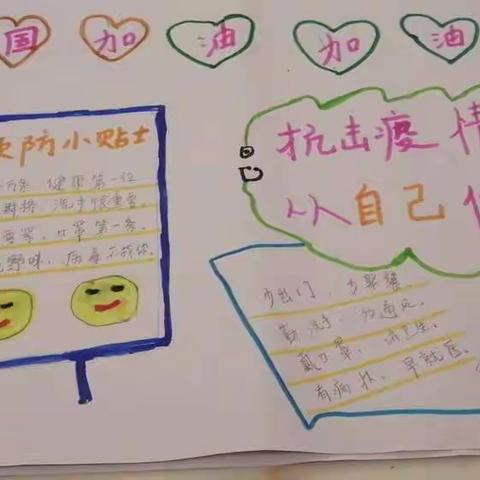 国 加 油 加 油
防小贴士
健康第一位
洗手很重要。
口罩第一条。
野味，病毒不找你。
抗击疫情
从自己
少出门，少聚餐
勤洗手，多通风，
戴口罩，讲卫生。
有病状，早就医。